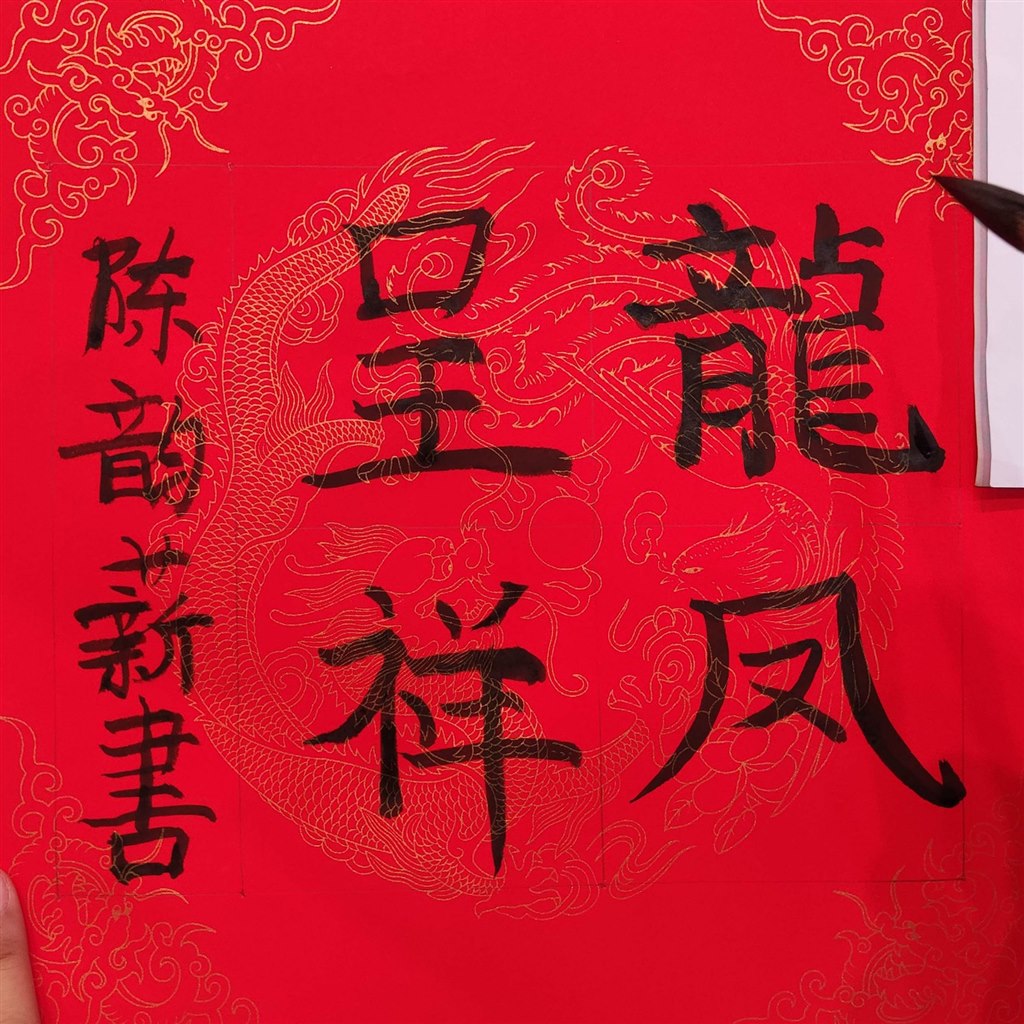 龍凤
呈祥
陈韵薪書